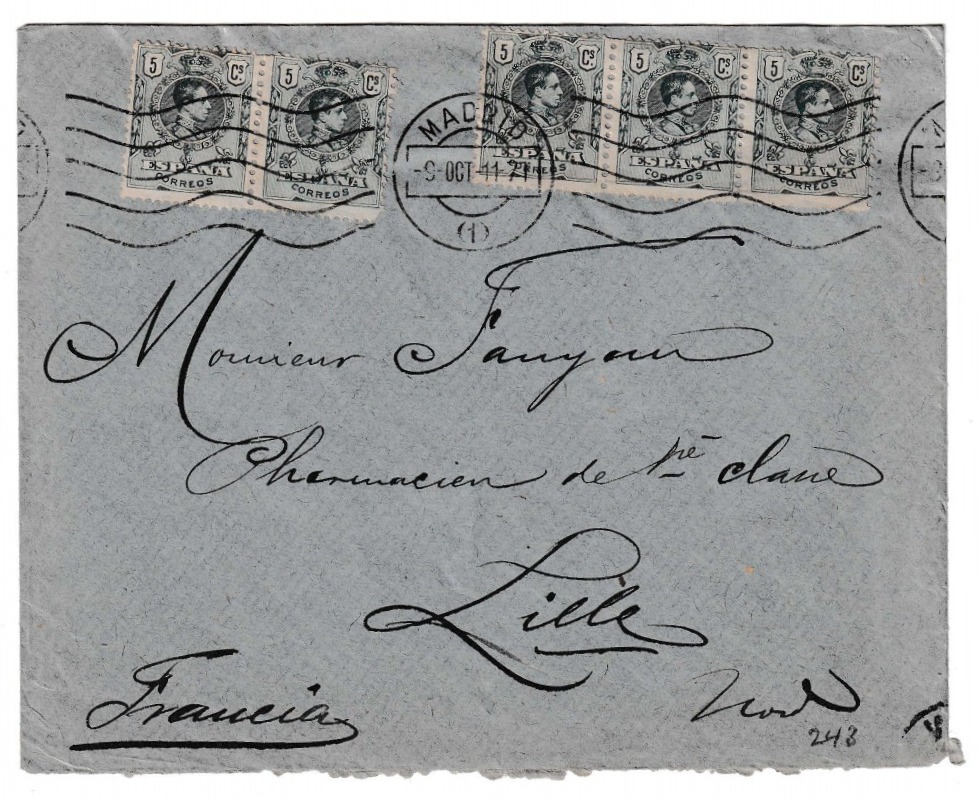 5 Cs 5 Cs 5 Cs 5 Cs 5 Cs
ESPAÑA ESPAÑA ESPAÑA ESPAÑA ESPAÑA
CORREOS CORREOS CORREOS CORREOS CORREOS
MADRID
-9 OCT 11
(1)
Monsieur Fanyau
Pharmacien de 1re classe
Lille
Francia
Nord
243